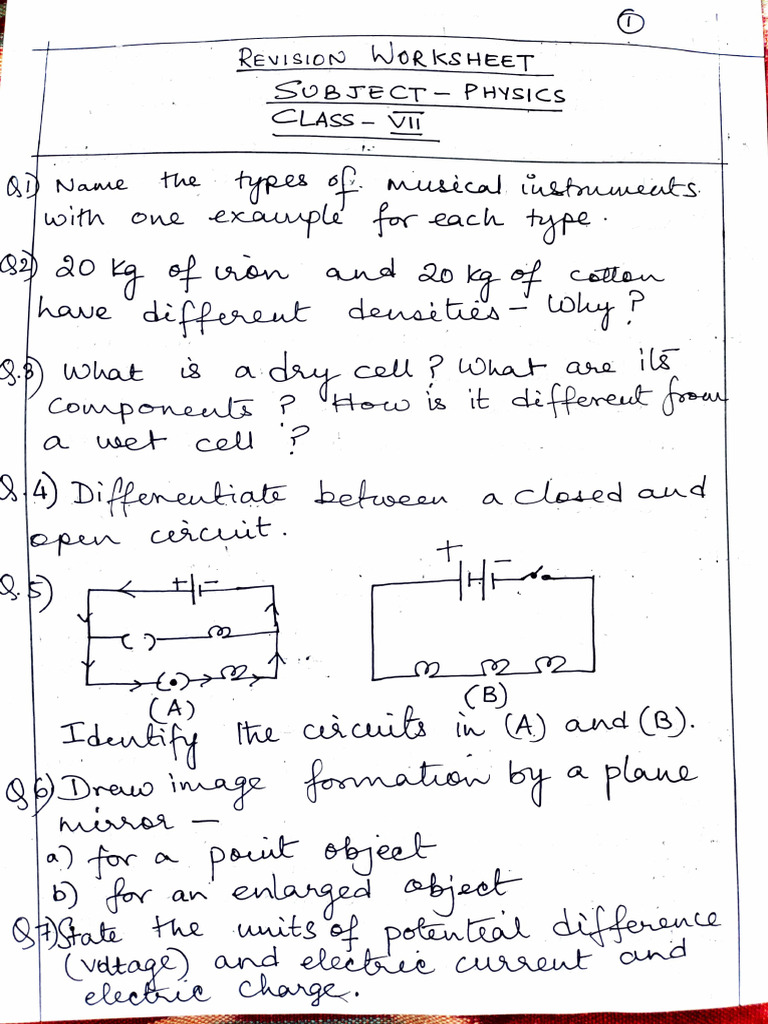 1
REVISION WORKSHEET
SUBJECT - PHYSICS
CLASS - VII
Q1) Name the types of musical instruments
with one example for each type.
Q2) 20 kg of iron and 20 kg of cotton
have different densities - Why?
Q.3) What is a dry cell? What are its
components? How is it different from
a wet cell?
Q.4) Differentiate between a closed and
open circuit.
Q.5)
+ -
+ -
(A)
(B)
Identify the circuits in (A) and (B).
Q6) Draw image formation by a plane
mirror -
a) for a point object
b) for an enlarged object
Q7) State the units of potential difference
(voltage) and electric current and
electric charge.